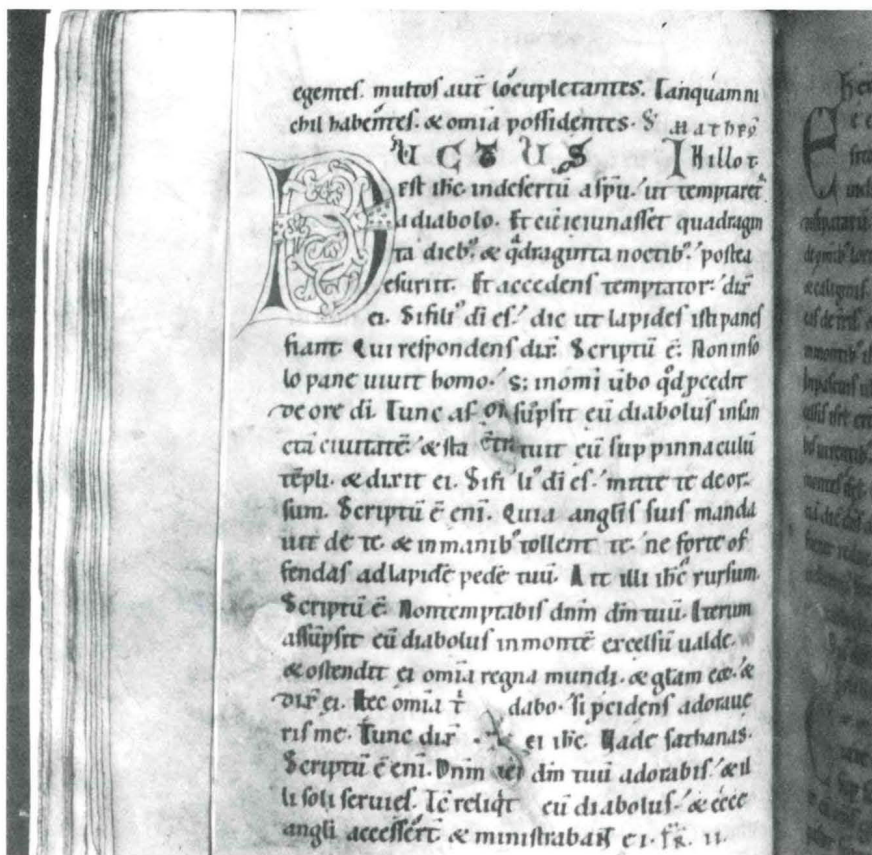 egentes. multos aut̄ locupletantes. Tanquam ni
chil habentes. & om̄ia possidentes. S̄ Matheū
DUCTUS IN illo t̄.
est ih̄c in desertū a sp̄u. ut temptaret̄
a diabolo. Et cū ieiunasset quadragin
ta dieb; & q̄draginta noctib; postea
esuriit. Et accedens temptator. dix̄
ei. Si fili᷒ dī es. dic ut lapides isti panes
fiant. Qui respondens dix̄. Scriptū ē. Non in so
lo pane uiuit homo. s; in om̄i ūbo qd̄ p̄cedit
de ore dī. Tunc as sūpsit eū diabolus in san
ctā ciuitatē. & sta tuit eū sup pinnaculū
tēpli. & dixit ei. Si fi li᷒ dī es. mitte te deor
sum. Scriptū ē enī. Quia angl̄is suis manda
uit de te. & in manib; tollent te. ne forte of
fendas ad lapidē pedē tuū. Ait illi ih̄c rursum.
Scriptū ē. Non temptabis dn̄m dm̄ tuū. Iterum
assūpsit eū diabolus in montē excelsū ualde.
& ostendit ei om̄ia regna mundi. & gl̄am eoꝝ. &
dix̄ ei. Hec om̄ia t̄ dabo. si cidens adoraue
ris me. Tunc dix̄ ei ih̄c. Uade sathanas.
Scriptū ē enī. Dn̄m dm̄ tuū adorabis. & il
li soli seruies. Tc̄ reliq̄t eū diabolus. & ecce
angl̄i accessert̄ & ministrabant ei. FR̄. II.